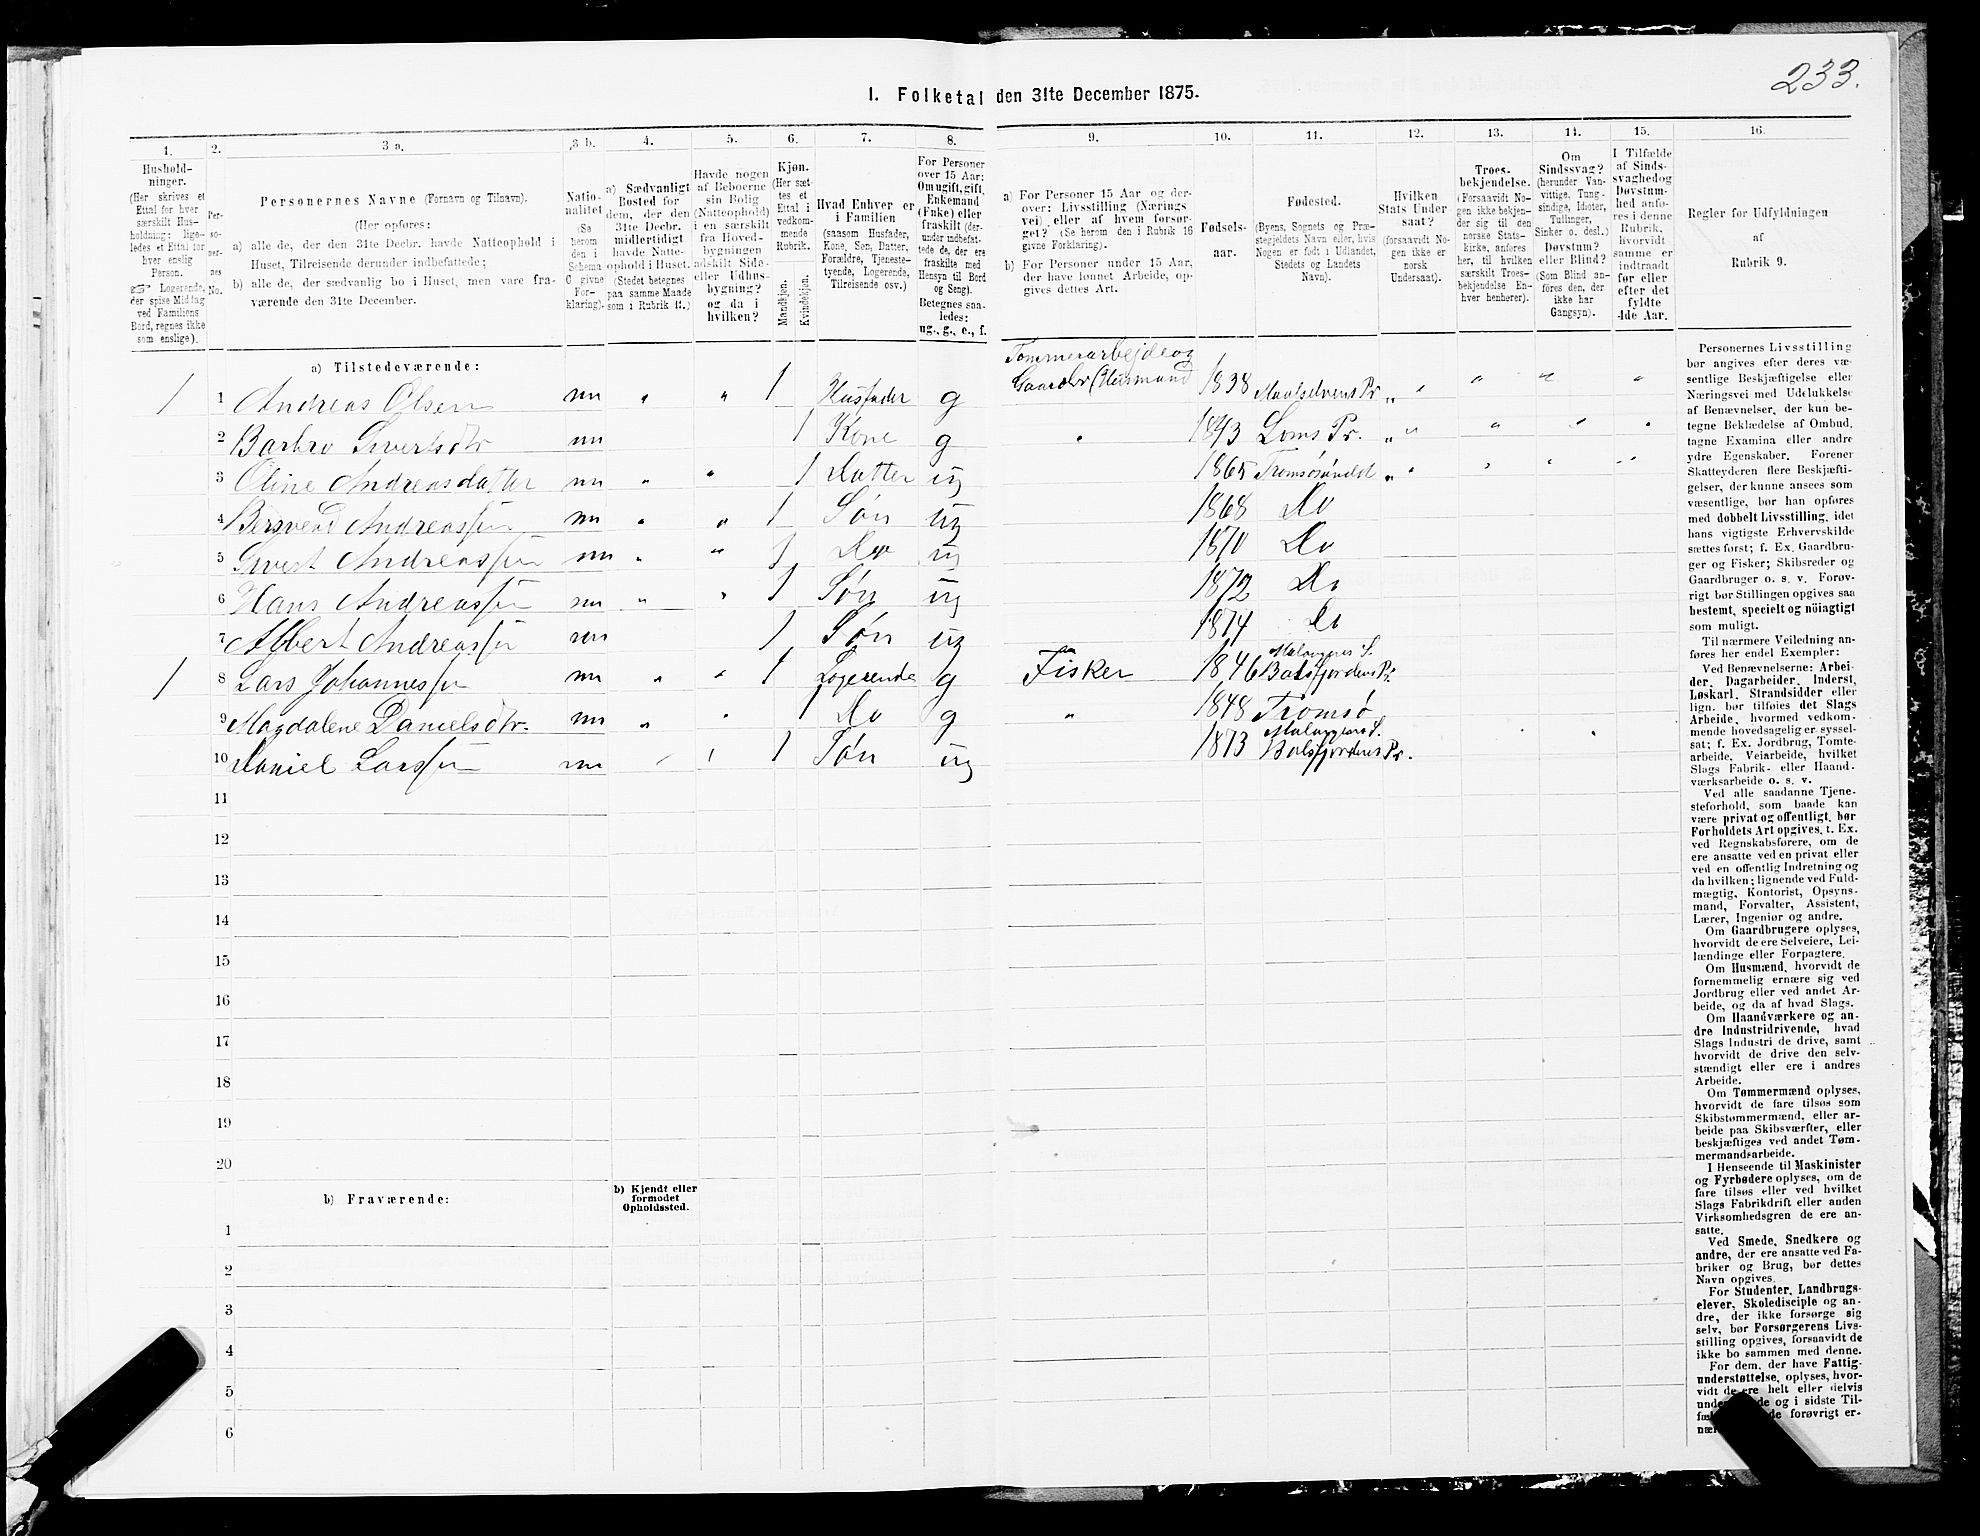 233.
I. Folketal den 31te December 1875.
1. 2. 3 a. 3 b. 4. 5. 6. 7. 8. 9. 10. 11. 12. 13. 14. 15. 16.
Husholdninger.
(Her skrives et Ettal for hver særskilt Husholdning; ligeledes et Ettal for hver enslig Person.
☞ Logerende, der spise Middag ved Familiens Bord, regnes ikke som enslige).
Personernes No.
Personernes Navne (Fornavn og Tilnavn).
(Her opføres:
a) alle de, der den 31te Decbr. havde Natteophold i Huset, Tilreisende derunder indbefattede;
b) alle de, der sædvanlig bo i Huset, men vare fraværende den 31te December.
Nationalitet (Se herom den i Schema C givne Forklaring).
a) Sædvanligt Bosted for dem, der den 31te Decbr. midlertidigt havde Natteophold i Huset. (Stedet betegnes paa samme Maade som i Rubrik 11.)
Havde nogen af Beboerne sin Bolig (Natteophold) i en særskilt fra Hovedbygningen adskilt Side- eller Udhusbygning? og da i hvilken?
Kjøn. (Her sættes et Ettal i vedkommende Rubrik.
Mandkjøn. Kvindekjøn.
Hvad Enhver er i Familien (saasom Husfader, Kone, Søn, Datter, Forældre, Tjenestetyende, Logerende, Tilreisende osv.)
For Personer over 15 Aar: Om ugift, gift, Enkemand (Enke) eller fraskilt (derunder indbefattede, de ere fraskilte med Hensyn til Bord og Seng). Betegnes saaledes: ug., g., e., f.
a) For Personer 15 Aar og derover: Livsstilling (Næringsvei) eller af hvem forsørget? (Se herom den i Rubrik 16 givne Forklaring).
b) For Personer under 15 Aar, der have lønnet Arbeide, opgives dettes Art.
Fødselsaar.
Fødested. (Byens, Sognets og Præstegjeldets Navn eller, hvis Nogen er født i Udlandet, Stedets og Landets Navn).
Hvilken Stats Undersaat? (forsaavidt Nogen ikke er norsk Undersaat).
Troesbekjendelse. (Forsaavidt Nogen ikke bekjender sig til den norske Statskirke, anføres her, til hvilken særskilt Troesbekjendelse Enhver henhører).
Om Sindssvag? (herunder Vanvittige, Tungsindige, Idioter, Tullinger, Sinker o. desl.) Døvstum? eller Blind? (Som Blind anføres den, der ikke har Gangsyn).
I Tilfælde af Sindssvaghed og Døvstumhed anføres i denne Rubrik, hvorvidt samme er indtraadt før eller efter det fyldte 4de Aar.
Regler for Udfyldningen
af
Rubrik 9.
a) Tilstedeværende:
1 1 Andreas Olsen nn „ „ 1 Husfader g Tømmerarbejde og Gaardbr (Husmand 1838 Maalselvens Pr „
2 Barbro Sivertsdtr nn 1 Kone g „ 1843 Loms Pr. „
3 Oline Andreasdatter nn „ „ 1 Datter ug 1865 Tromsøsundet „
4 Bersvend Andreassen nn „ „ 1 Søn ug 1868 Do
5 Sivert Andreassen nn „ „ 1 Do ug 1870 Do
6 Hans Andreassen nn „ „ 1 Søn ug 1872 Do
7 Albert Andreassen nn 1 Søn ug 1874 Do
1 8 Lars Johannessen nn „ „ 1 Logerende g Fisker 1846 Malangens S. Balsfjordens Pr.
9 Magdalene Danielsdtr. nn „ „ 1 Do g „ 1848 Tromsø
10 Daniel Larssen nn „ „ 1 Søn ug 1873 Malangens S. Balsfjordens Pr.
11
12
13
14
15
16
17
18
19
20
b) Fraværende:
b) Kjendt eller formodet Opholdssted.
1
2
3
4
5
6
Personernes Livsstilling
bør angives efter deres væ-
sentlige Beskjæftigelse eller
Næringsvei med Udelukkelse
af Benævnelser, der kun be-
tegne Beklædelse af Ombud,
tagne Examina eller andre
ydre Egenskaber. Forener
Skatteyderen flere Beskjæfti-
gelser, der kunne ansees som
væsentlige, bør han opføres
med dobbelt Livsstilling, idet
hans vigtigste Erhvervskilde
sættes først; f. Ex. Gaardbru-
ger og Fisker; Skibsreder og
Gaardbruger o. s. v. Forøv-
rigt bør Stillingen opgives saa
bestemt, specielt og nöiagtigt
som muligt.
Til nærmere Veiledning an-
føres her endel Exempler:
Ved Benævnelserne: Arbei-
der, Dagarbeider, Inderst,
Løskarl, Strandsidder eller
lign. bør tilføies det Slags
Arbeide, hvormed vedkom-
mende hovedsagelig er syssel-
sat; f. Ex. Jordbrug, Tomte-
arbeide, Veiarbeide, hvilket
Slags Fabrik- eller Haand-
værksarbeide o. s. v.
Ved alle saadanne Tjene-
steforhold, som baade kan
være privat og offentligt, bør
Forholdets Art opgives, t. Ex.
ved Regnskabsførere, om de
ere ansatte ved en privat eller
ved en offentlig Indretning og
da hvilken; lignende ved Fuld-
mægtig, Kontorist, Opsyns-
mand, Forvalter, Assistent,
Lærer, Ingeniør og andre.
Om Gaardbrugere oplyses,
hvorvidt de ere Selveiere, Lei-
lændinge eller Forpagtere.
Om Husmænd, hvorvidt de
fornemmelig ernære sig ved
Jordbrug eller ved andet Ar-
beide, og da af hvad Slags.
Om Haandværkere og an-
dre Industridrivende, hvad
Slags Industri de drive, samt
hvorvidt de drive den selv-
stændigt eller ere i andres
Arbeide.
Om Tømmermænd oplyses,
hvorvidt de fare tilsøs som
Skibstømmermænd, eller ar-
beide paa Skibsværfter, eller
beskjæftiges ved andet Tøm-
mermandsarbeide.
I Henseende til Maskinister
og Fyrbødere oplyses, om de
fare tilsøs eller ved hvilket
Slags Fabrikdrift eller anden
Virksomhedsgren de ere an-
satte.
Ved Smede, Snedkere og
andre, der ere ansatte ved Fa-
briker og Brug, bør dettes
Navn opgives.
For Studenter, Landbrugs-
elever, Skoledisciple og an-
dre, der ikke forsørge sig
selv, bør Forsørgerens Livs-
stilling opgives, forsaavidt de
ikke bo sammen med denne.
For dem, der have Fattig-
understøttelse, oplyses, hvor-
vidt de ere helt eller delvis
og i sidste Til-
forøvrigt er-